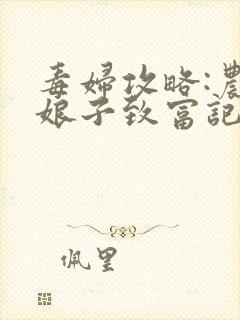 毒婦攻略:農
娘子致富記
佩里